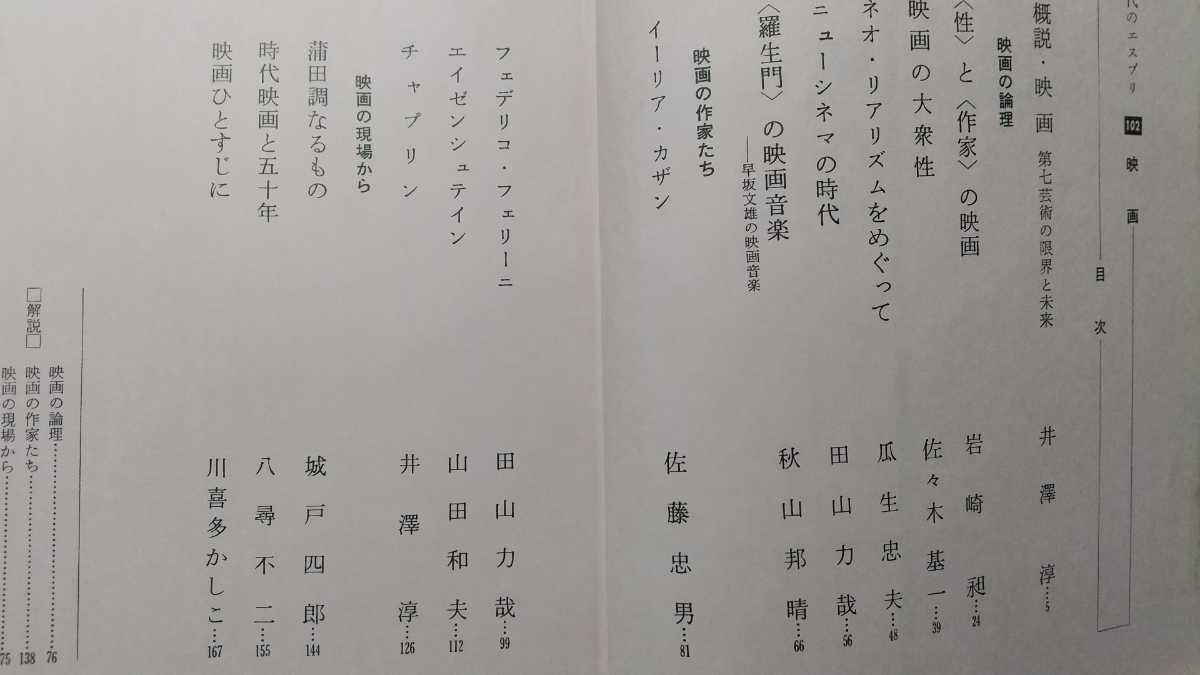 代のエスプリ 102 映画
目次
概説・映画 第七芸術の限界と未来 井澤淳…5
映画の論理
〈性〉と〈作家〉の映画 岩崎昶…24
映画の大衆性 佐々木基一…39
ネオ・リアリズムをめぐって 瓜生忠夫…48
ニューシネマの時代 田山力哉…56
〈羅生門〉の映画音楽 秋山邦晴…66
――早坂文雄の映画音楽
映画の作家たち
イーリア・カザン 佐藤忠男…81
フェデリコ・フェリーニ 田山力哉…99
エイゼンシュテイン 山田和夫…112
チャプリン 井澤淳…126
映画の現場から
蒲田調なるもの 城戸四郎…144
時代映画と五十年 八尋不二…155
映画ひとすじに 川喜多かしこ…167
□解説□
映画の論理…………76
映画の作家たち…………138
映画の現場から…………75